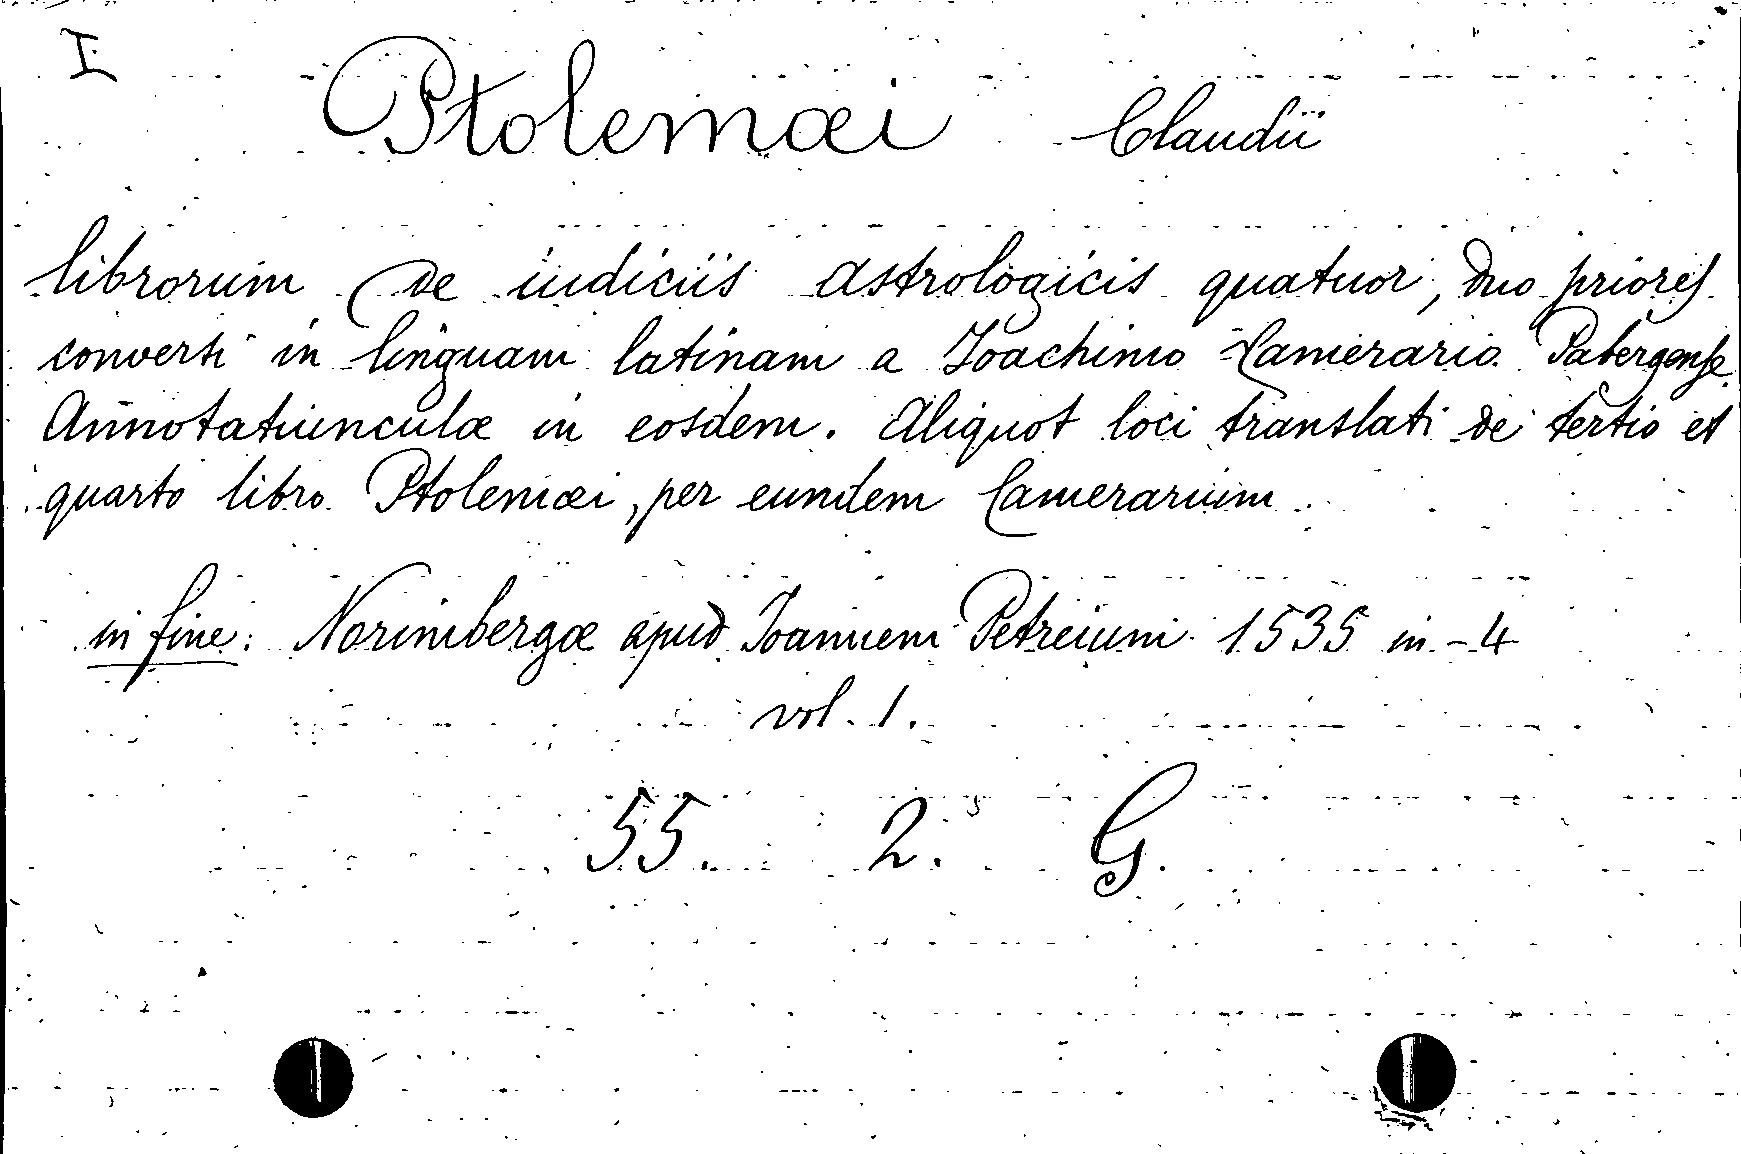 I
Ptolemæi Claudii
librorum de iudiciis astrologicis quatuor, duo priores
conversi in linguam latinam a Joachimo Camerario Pabergense.
Annotatiunculæ in eosdem. Aliquot loci translati de tertio et
quarto libro Ptolemæi, per eundem Camerarium
in fine: Norimbergæ apud Joannem Petreium 1535 in-4
vol. 1.
55. 2. G.